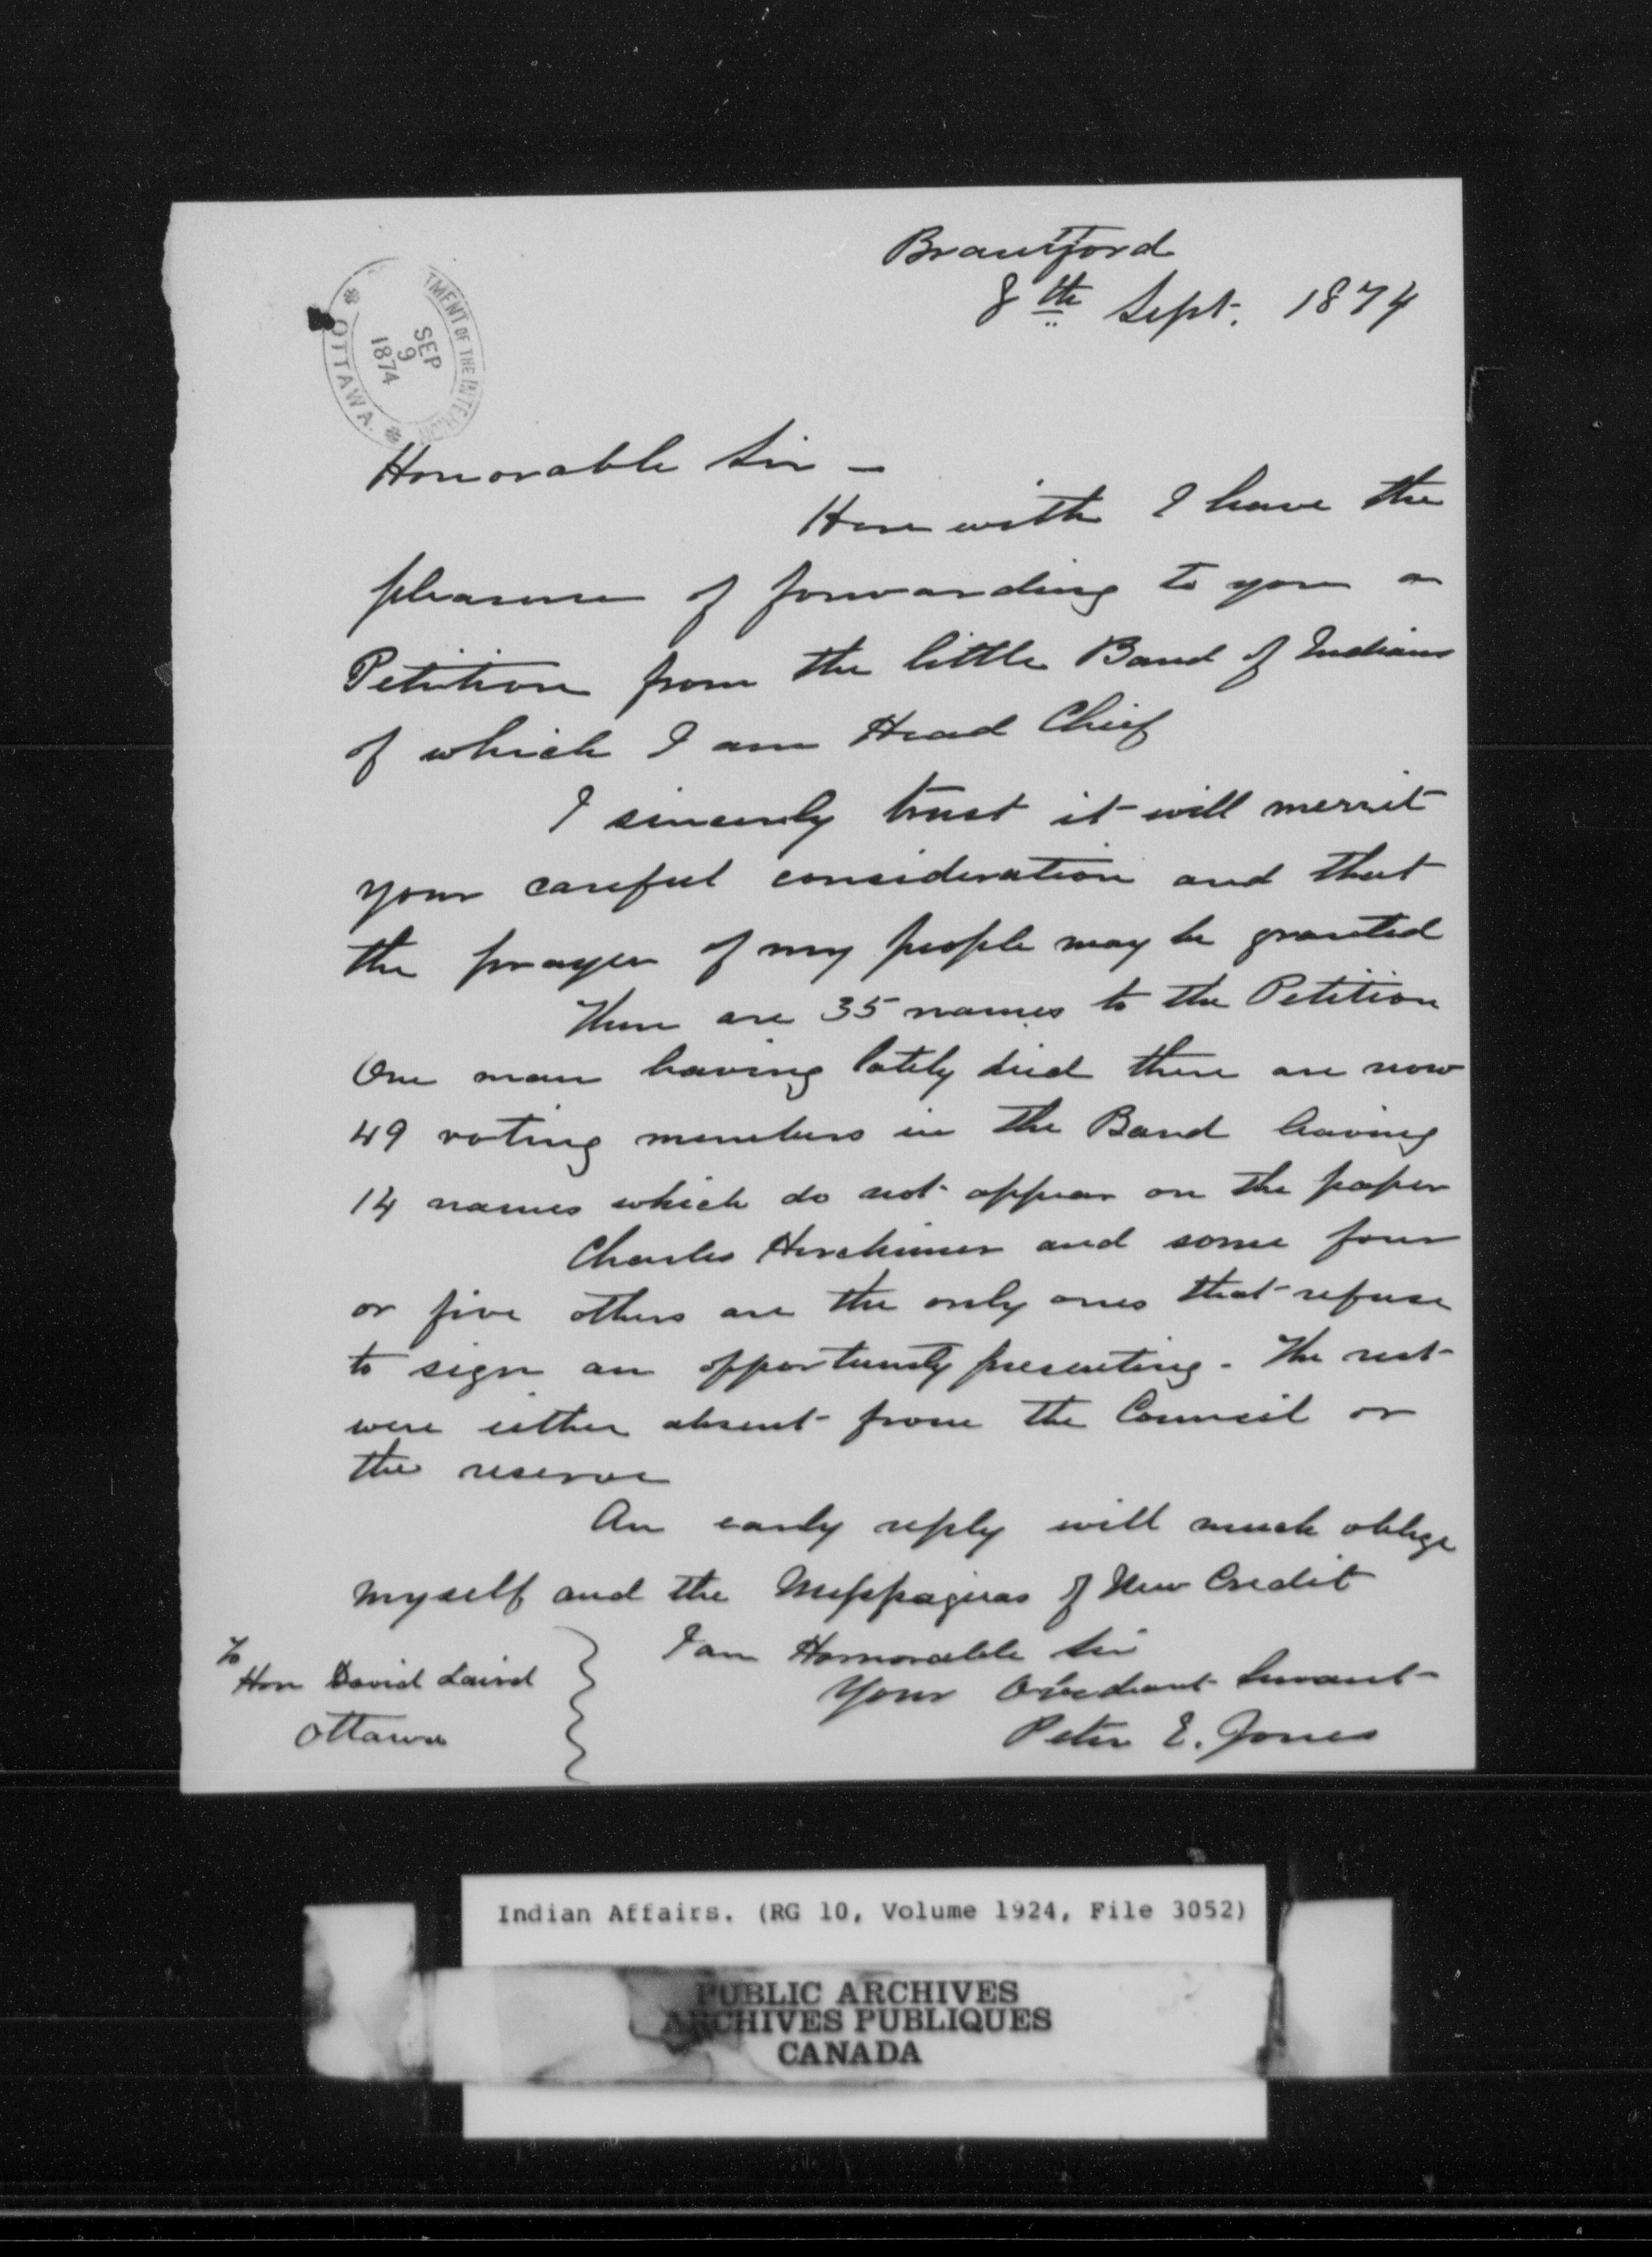 Brantford
8th Sept. 1874
TMENT OF THE INTERIOR
SEP
9
1874
OTTAWA.
Honorable Sir –
Herewith I have the
pleasure of forwarding to you a
Petition from the little Band of Indians
of which I am Head Chief
I sincerely trust it will merrit
your careful consideration and that
the prayer of my people may be granted
There are 35 names to the Petition
One man having lately died there are now
49 voting members in the Band leaving
14 names which do not appear on the paper
Charles Herchimer and some four
or five others are the only ones that refuse
to sign an opportunity presenting - The rest
were either absent from the Council or
the reserve
An early reply will much oblige
myself and the Missisaguas of New Credit
I am Honorable Sir
Your Obediant Servant
Peter E. Jones
To
Hon David Laird
Ottawa
Indian Affairs. (RG 10, Volume 1924, File 3052)
PUBLIC ARCHIVES
ARCHIVES PUBLIQUES
CANADA